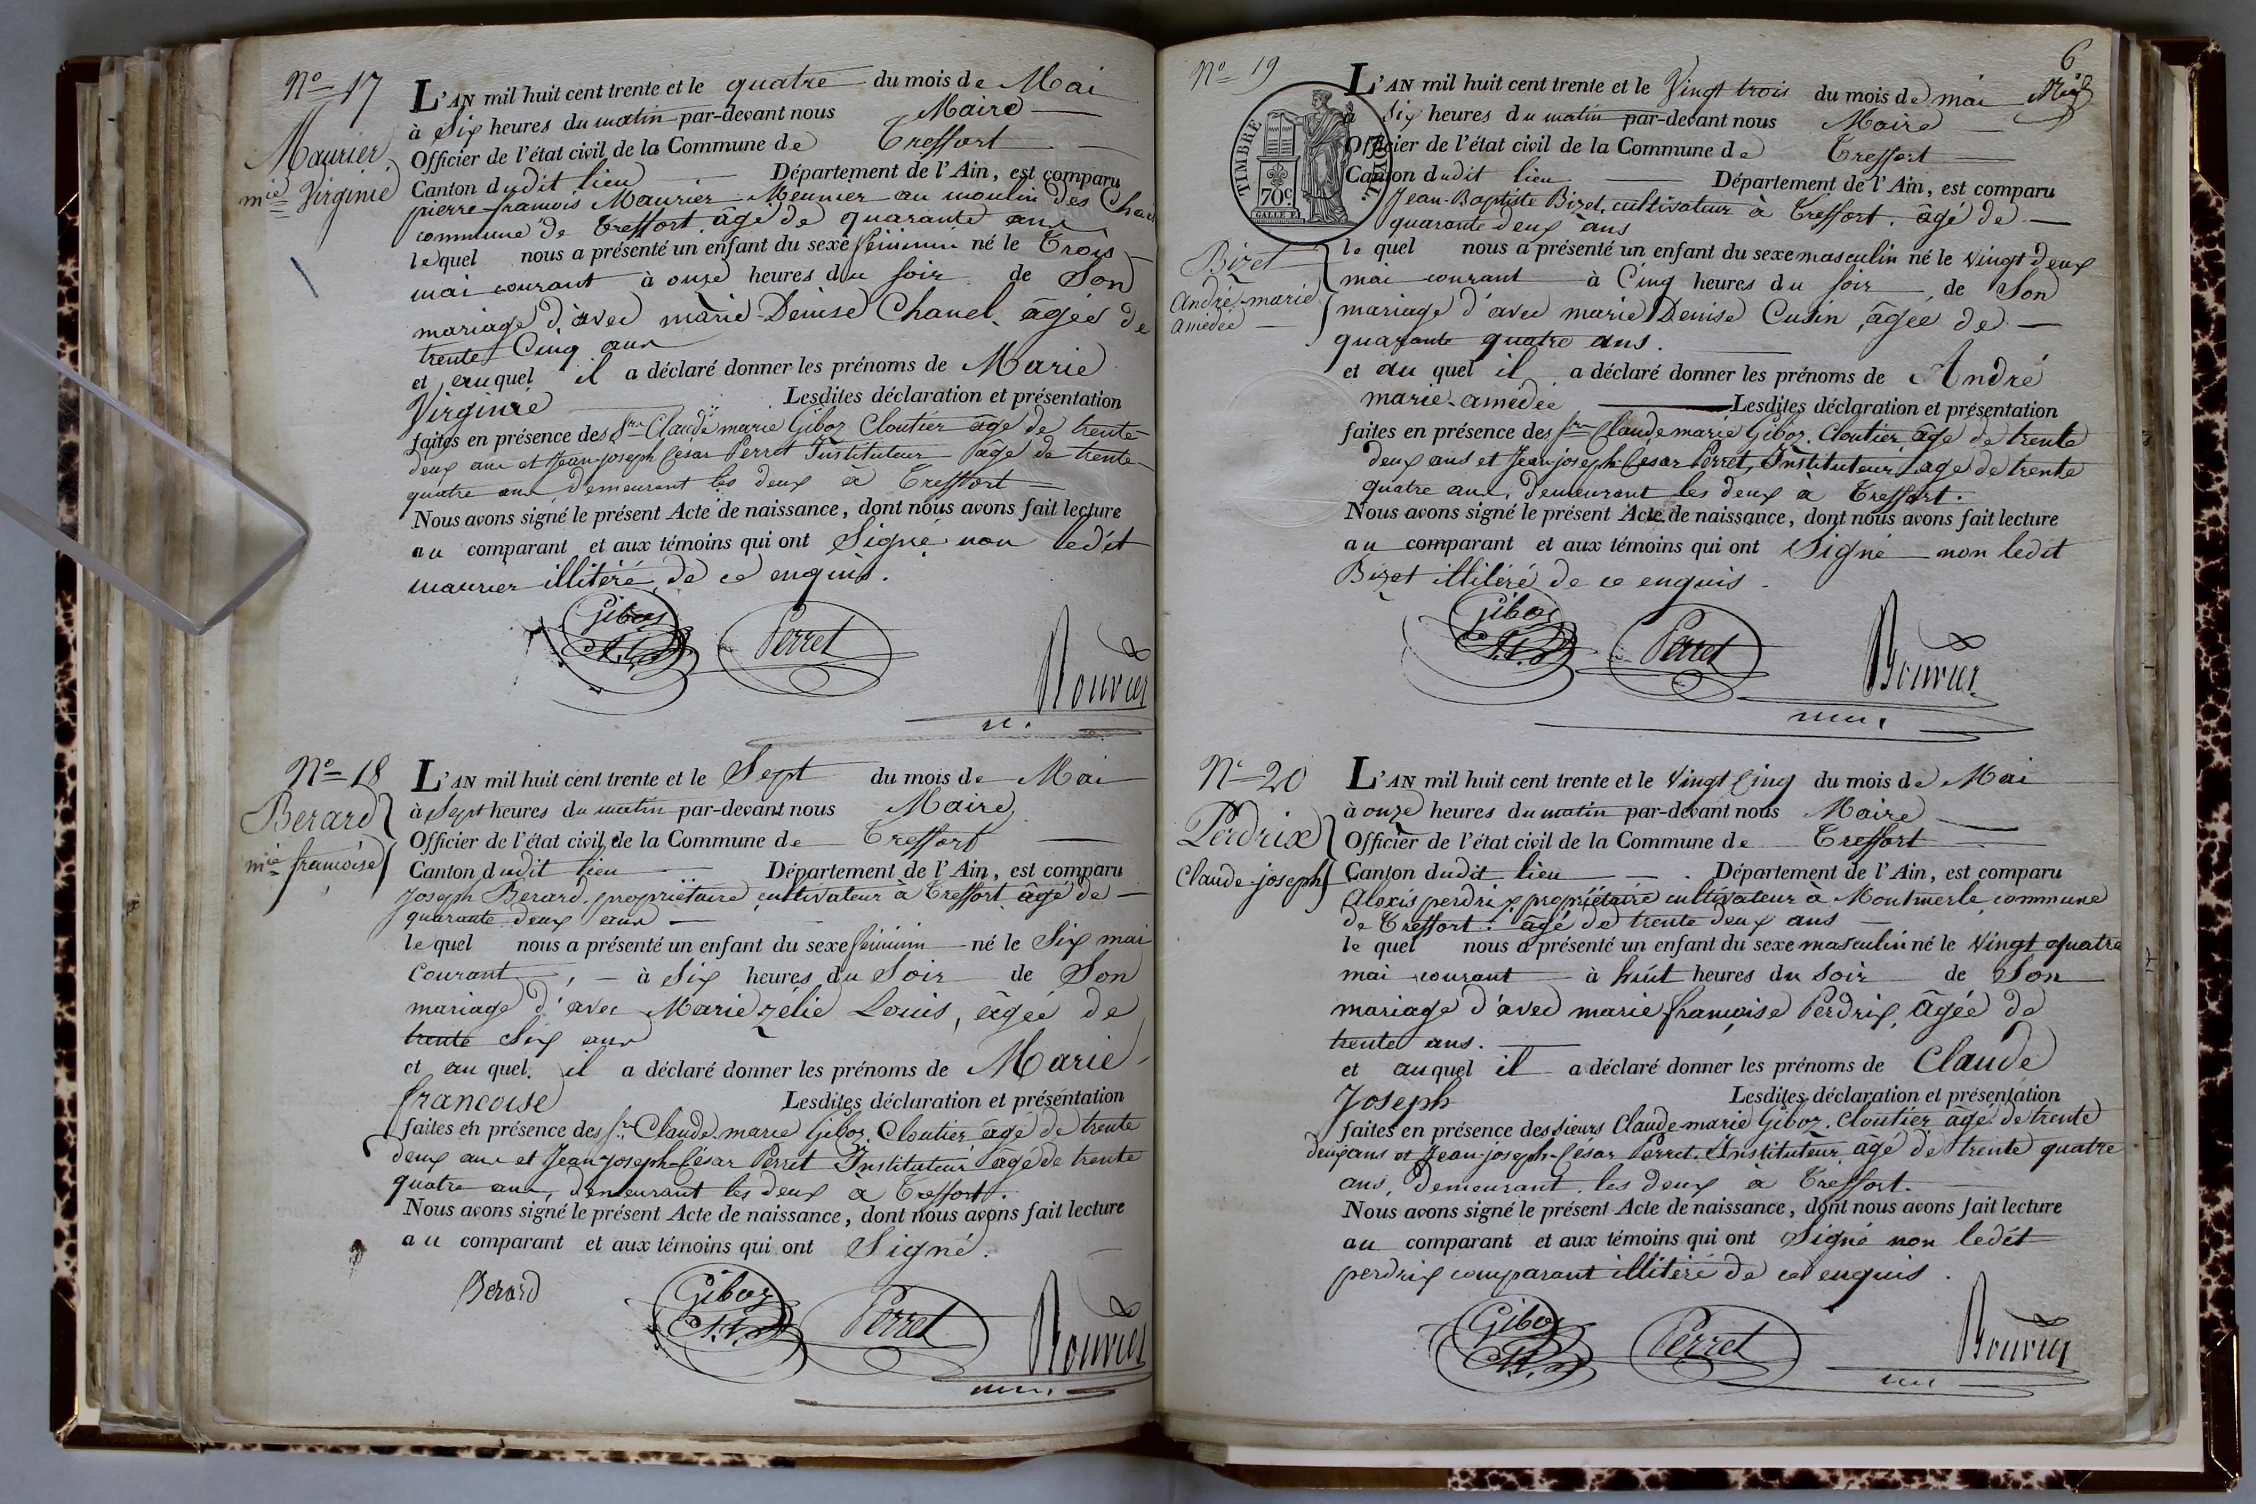 Nº 17
Maurier
mie Virginie
L'AN mil huit cent trente et le quatre du mois de Mai
à Six heures du matin par-devant nous Maire
Officier de l'état civil de la Commune de Treffort
Canton dudit lieu Département de l'Ain, est comparu
pierre-francois Maurier Meunier au moulin des
commune de Treffort âgé de quarante ans
lequel nous a présenté un enfant du sexe féminin né le Trois
mai courant à onze heures du soir de Son
mariage d'avec marie-Denise Chanel, âgée de
trente Cinq ans
et auquel il a déclaré donner les prénoms de Marie
Virginie Lesdites déclaration et présentation
faites en présence des Srs Claude marie Giboz Cloutier âgé de trente
deux ans et Jean-joseph César Perret Instituteur âgé de trente
quatre ans, demeurant les deux à Treffort
Nous avons signé le présent Acte de naissance, dont nous avons fait lecture
au comparant et aux témoins qui ont Signé non ledit
maurier illitéré de ce enquis.
Giboz Perret Bouvier
Nº 18
Berard
mie francoise
L'AN mil huit cent trente et le Sept du mois de Mai
à Sept heures du matin par-devant nous Maire
Officier de l'état civil de la Commune de Treffort
Canton dudit lieu Département de l'Ain, est comparu
Joseph Berard, propriétaire cultivateur à Treffort âgé de
quarante deux ans
lequel nous a présenté un enfant du sexe féminin né le Six mai
Courant, à Six heures du Soir de Son
mariage d'avec Marie zélie Louis, âgée de
trente Six ans
et auquel il a déclaré donner les prénoms de Marie
francoise Lesdites déclaration et présentation
faites en présence des Sr. Claude-marie Giboz. Cloutier âgé de trente
deux ans et Jean-joseph-César Perret Instituteur âgé de trente
quatre ans, demeurant les deux à Treffort.
Nous avons signé le présent Acte de naissance, dont nous avons fait lecture
au comparant et aux témoins qui ont Signé.
Berard Giboz Perret Bouvier
6
Nº 19
TIMBRE ROYAL.
70c.
Bizet
André-marie
amédée
L'AN mil huit cent trente et le Vingt trois du mois de mai
à Six heures du matin par-devant nous Maire
Officier de l'état civil de la Commune de Treffort
Canton dudit lieu Département de l'Ain, est comparu
Jean-Baptiste Bizet, cultivateur à Treffort. âgé de
quarante deux ans
le quel nous a présenté un enfant du sexe masculin né le vingt deux
mai courant à Cinq heures du soir de Son
mariage d'avec marie Denise Cusin, âgée de
quarante quatre ans.
et au quel il a déclaré donner les prénoms de André
marie-amédée Lesdites déclaration et présentation
faites en présence des Srs Claude marie Giboz. Cloutier âgé de trente
deux ans et Jean-joseph-César Perret, Instituteur âgé de trente
quatre ans, demeurant les deux à Treffort.
Nous avons signé le présent Acte de naissance, dont nous avons fait lecture
au comparant et aux témoins qui ont Signé non ledit
Bizet illitéré de ce enquis
Giboz Perret Bouvier
Nº 20
Perdrix
Claude-joseph
L'AN mil huit cent trente et le Vingt Cinq du mois de Mai
à onze heures du matin par-devant nous Maire
Officier de l'état civil de la Commune de Treffort
Canton dudit lieu Département de l'Ain, est comparu
Alexis perdrix propriétaire cultivateur à Montmerle commune
de Treffort. âgé de trente deux ans
le quel nous a présenté un enfant du sexe masculin né le Vingt quatre
mai courant à huit heures du soir de Son
mariage d'avec marie françoise Perdrix, âgée de
trente ans.
et auquel il a déclaré donner les prénoms de Claude
Joseph Lesdites déclaration et présentation
faites en présence des sieurs Claude-marie Giboz. Cloutier âgé de trente
deux ans et Jean-joseph-César Perret. Instituteur âgé de trente quatre
ans, demeurant les deux à Treffort.
Nous avons signé le présent Acte de naissance, dont nous avons fait lecture
au comparant et aux témoins qui ont Signé non ledit
perdrix comparant illitéré de ce enquis.
Giboz Perret Bouvier